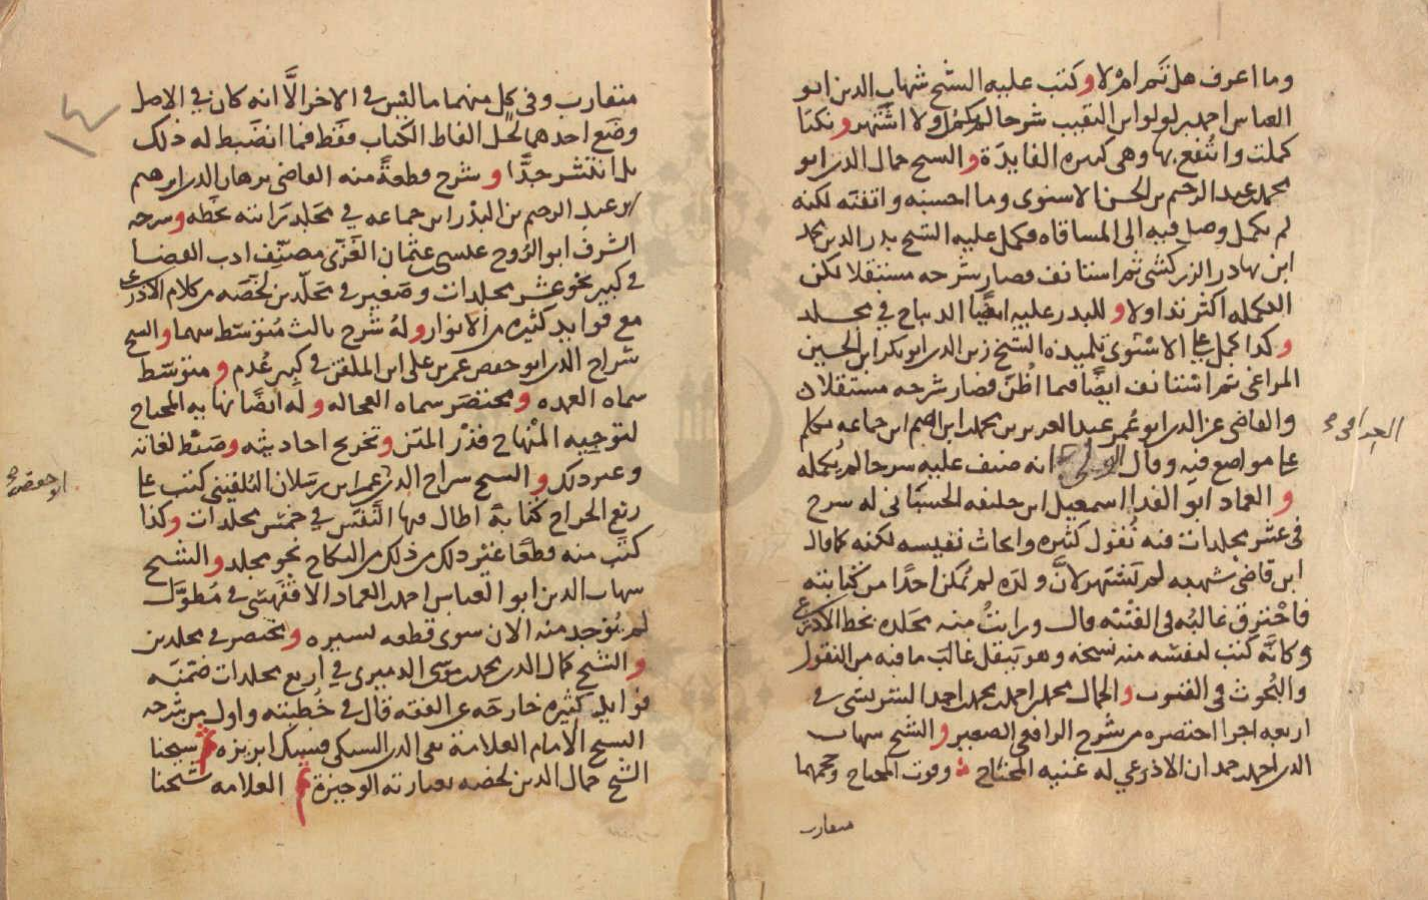 وما اعرف هل تم ام لا وكتب عليه الشيخ شهاب الدين ابو
العباس احمد بن لولو ابن النقيب شرحا لم يكمل ولا اشتهر ونكتا
كملت وانتفع بها وهى كثيره الفايدة والشيخ جمال الدين ابو
محمد عبد الرحيم بن الحسن الاسنوى وما احسنه واتقنه لكنه
لم يكمل وصل فيه الى المساقاه فكمل عليه الشيخ بدر الدين محمد
ابن بهادر الزركشى ثم استانف فصار شرحه مستقلا لكن
التكمله اكثر تداولا وللبدر عليه ايضًا الديباج في مجلد
وكذا كمل على الاسنوى تلميذه الشيخ زين الدين ابو بكر ابن الحسين
المراغى ثم استانف ايضًا فيما اظن فصار شرحه مستقلا
والقاضى عز الدين ابو عمر عبد العزيز بن محمد ابن ابراهيم ابن جماعه تكلم
على مواضع فيه وقال انه صنف عليه شرحا لم يكمله
والعماد ابو الفدا اسمعيل ابن خليفه الحسبانى له شرح
فى عشر مجلدات فيه نقول كثيره وابحاث نفيسه لكنه كما قال
ابن قاضى شهبه لم يشتهر لان ولده لم يمكن احدًا من كتابته
فاحترق غالبه فى الفتنه قال ورايت منه مجلده بخط الاذرعى
وكانه كتب لنفسه منه نسخه وهو ينقل غالب ما فيه من النقول
والبحوث فى القوت والجمال محمد بن احمد بن محمد بن احمد الشريشى في
اربعه اجزا اختصره من شرح الرافعى الصغير والشيخ شهاب
الدين احمد بن حمدان الاذرعي له غنية المحتاج وقوت المحتاج وحجمهما
متقارب
متقارب وفي كل منهما ما ليس في الاخر الا انه كان في الاصل
وضع احدهما لحل الفاظ الكتاب فقط فما انضبط له ذلك
بل انتشر جدًّا وشرح قطعةً منه القاضى برهان الدين ابرهيم
بن عبد الرحيم بن البدر ابن جماعه في مجلد رايته بخطه وشرحه
الشرف ابو الروح عيسى بن عثمان الغزى مصنف ادب القضا
في كبير نحو عشر مجلدات وصغير في مجلدين لخصه من كلام الاذرعى
مع فوايد كثيره من الانوار وله شرح ثالث متوسط بينهما والشيخ
سراج الدين ابو حفص عمر بن على ابن الملقن في كبير عُدم ومتوسط
سماه العمده ومختصر سماه العجاله وله ايضًا نهايه المحتاج
لتوجيه المنهاج قدر المتن وتخريج احاديثه وضبط لغاته
وغير ذلك والشيخ سراج الدين عمر ابن رسلان البلقينى كتب على
ربع الجراح كتابة اطال فيها النفس في خمس مجلدات وكذا
كتب منه قطعًا غير ذلك من ذلك من النكاح نحو مجلد والشيخ
شهاب الدين ابو العباس احمد بن العماد الاقفهسى في مطول
لم يوجد منه الان سوى قطعه يسيره ومختصر في مجلدين
والشيخ كمال الدين محمد بن موسى الدميرى في اربع مجلدات ضمنه
فوايد كثيره خارجه عن الفقه قال في خطبته واول من شرحه
الشيخ الامام العلامة تقى الدين السبكى فسبك ابريزه ثم شيخنا
الشيخ جمال الدين لخصه بعبارته الوجيزة ثم العلامه شيخنا
١٤